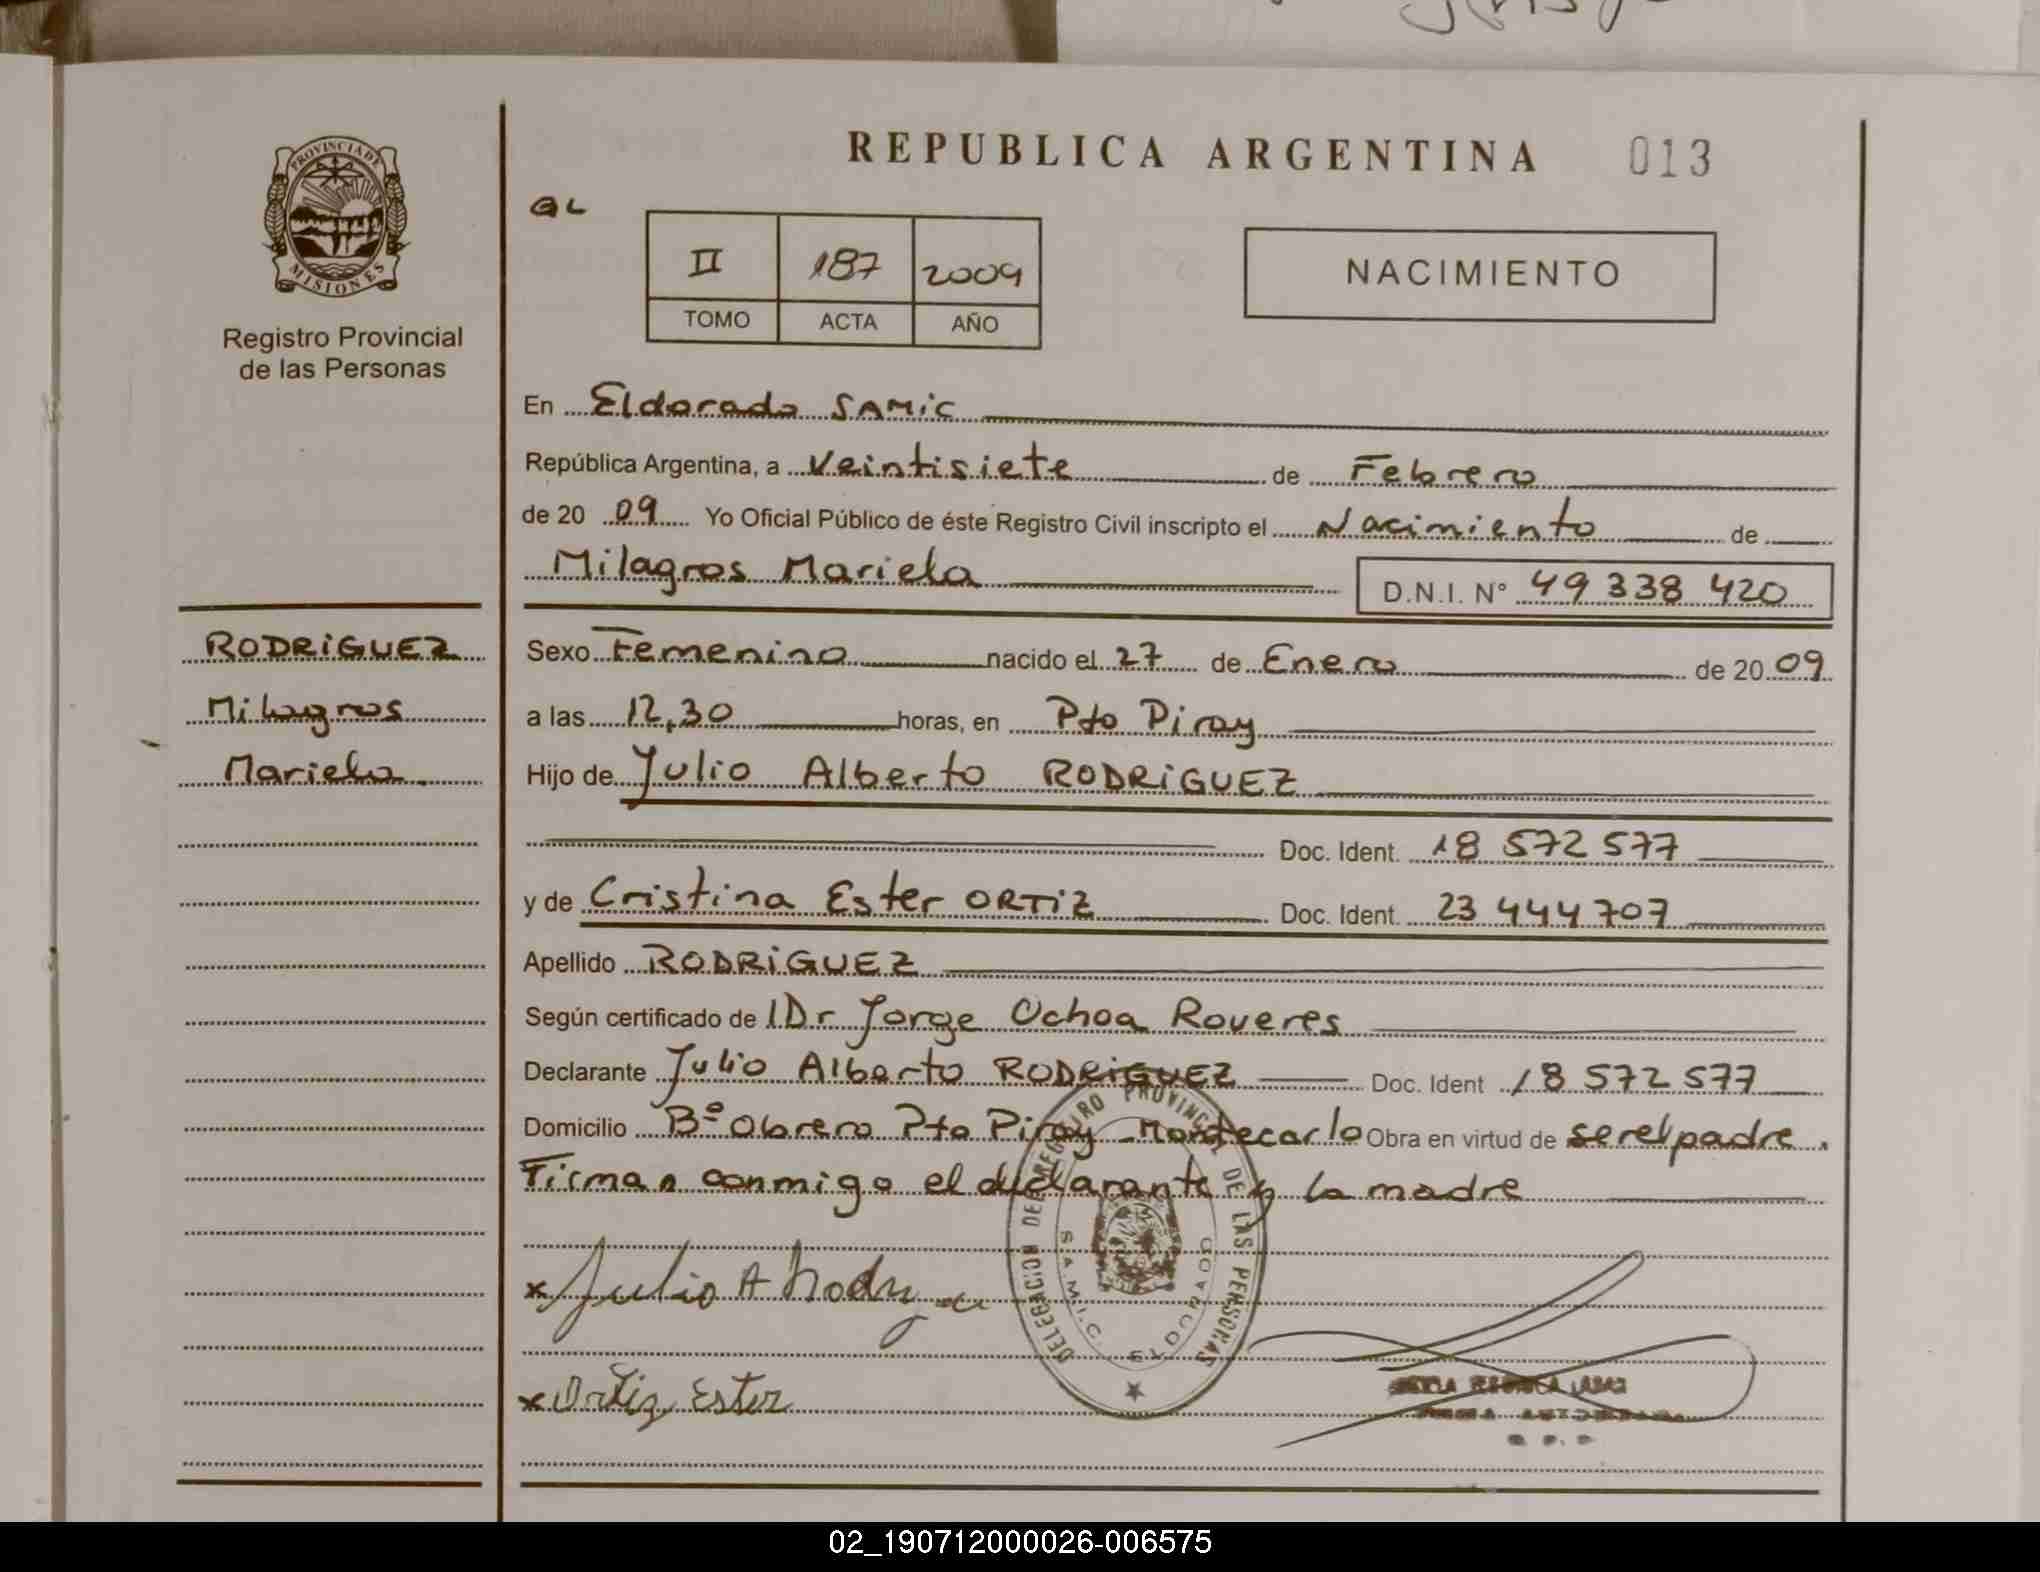 REPUBLICA ARGENTINA 013
PROVINCIA DE
MISIONES
Registro Provincial
de las Personas
GL
II 187 2009
TOMO ACTA AÑO
NACIMIENTO
En Eldorado SAMIC
República Argentina, a Veintisiete de Febrero
de 20 09 Yo Oficial Público de éste Registro Civil inscripto el Nacimiento de
Milagros Mariela D.N.I. N° 49 338 420
RODRIGUEZ
Milagros
Mariela
Sexo Femenino nacido el 27 de Enero de 20 09
a las 12,30 horas, en Pto Piray
Hijo de Julio Alberto RODRIGUEZ
Doc. Ident. 18 572 577
y de Cristina Ester ORTIZ Doc. Ident. 23 444 707
Apellido RODRIGUEZ
Según certificado de Dr Jorge Ochoa Roveres
Declarante Julio Alberto RODRIGUEZ Doc. Ident 18 572 577
Domicilio Bº Obrero Pto Piray Montecarlo Obra en virtud de ser el padre.
Firman conmigo el declarante y la madre
DELEGACION DE REGISTRO PROVINCIAL DE LAS PERSONAS
S.A.M.I.C. ELDORADO
x Julio A Rodrguez
x Ortiz Ester
02_190712000026-006575